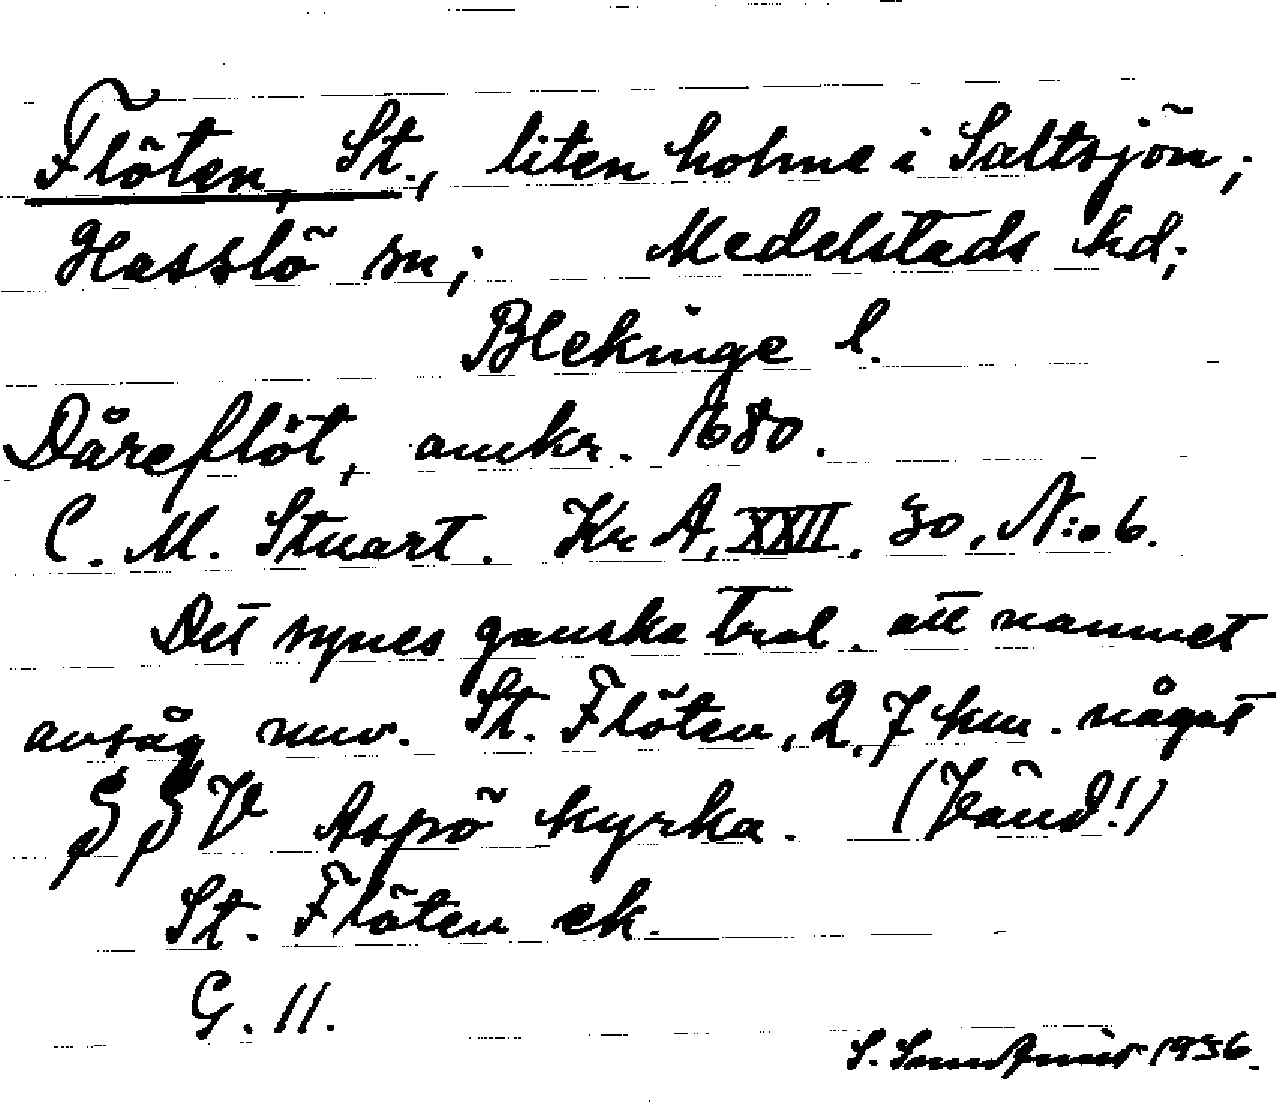 Flöten, St., liten holme i Saltsjön;
Hasslö sn; Medelstads hd;
Blekinge l.
Dåreflöt, omkr. 1680.
C. M. Stuart. Kr A, XXII, 30, N:o 6.
Det synes ganska trol. att namnet
avsåg nuv. St. Flöten, 2,7 km. något
S S V Aspö kyrka. (Vänd!)
St. Flöten ek.
G. 11.
S. 1936.